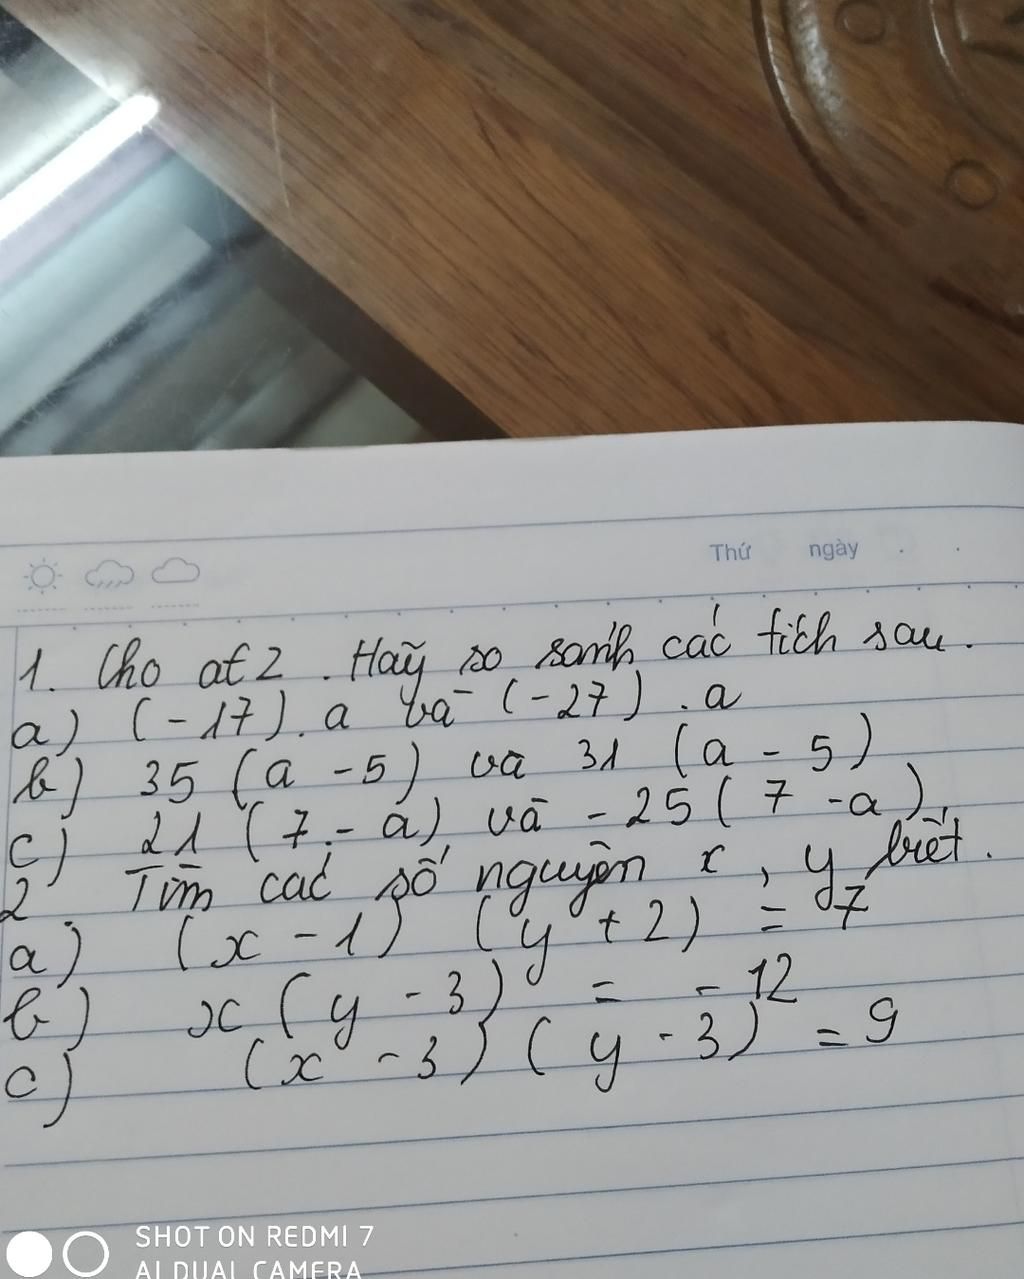 Thứ ngày . .
1. Cho a€2. Hãy so sánh các tích sau.
a) (-17). a và (-27) . a
b) 35 (a - 5) và 31 (a - 5)
c) 21 (7 - a) và - 25 ( 7 - a),
2. Tìm các số nguyên x, y biết.
a) (x - 1) (y + 2) = 7
b) x (y - 3) = - 12
c) (x - 3) (y - 3) = 9
SHOT ON REDMI 7
AI DUAL CAMERA